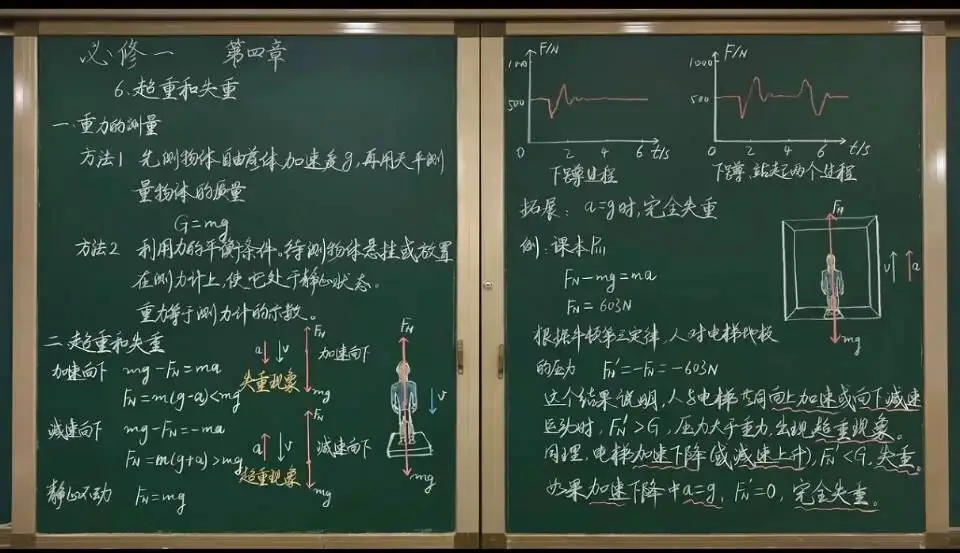 必修一 第四章
6.超重和失重
一.重力的测量
方法1 先测物体自由落体加速度g,再用天平测
量物体的质量
G=mg
方法2 利用力的平衡条件。待测物体悬挂或放置
在测力计上,使它处于静止状态。
重力等于测力计的示数。
二.超重和失重
加速向下 mg-FN=ma
FN=m(g-a)<mg
a v
失重现象
FN
加速向下
mg
减速向下 mg-FN=-ma
FN=m(g+a)>mg
a v
超重现象
FN
减速向下
mg
静止不动 FN=mg
FN
v
mg
F/N
1000
500
0 2 4 6 t/s
下蹲过程
F/N
1000
500
0 2 4 6 t/s
下蹲、站起两个过程
拓展: a=g时,完全失重
例:课本
FN-mg=ma
FN=603N
FN
v a
mg
根据牛顿第三定律,人对电梯地板
的压力 FN'=-FN=-603N
这个结果说明,人与电梯共同向上加速或向下减速
运动时,FN'>G,压力大于重力,出现超重现象。
同理,电梯加速下降(或减速上升),FN'<G,失重。
如果加速下降中a=g,FN'=0,完全失重。